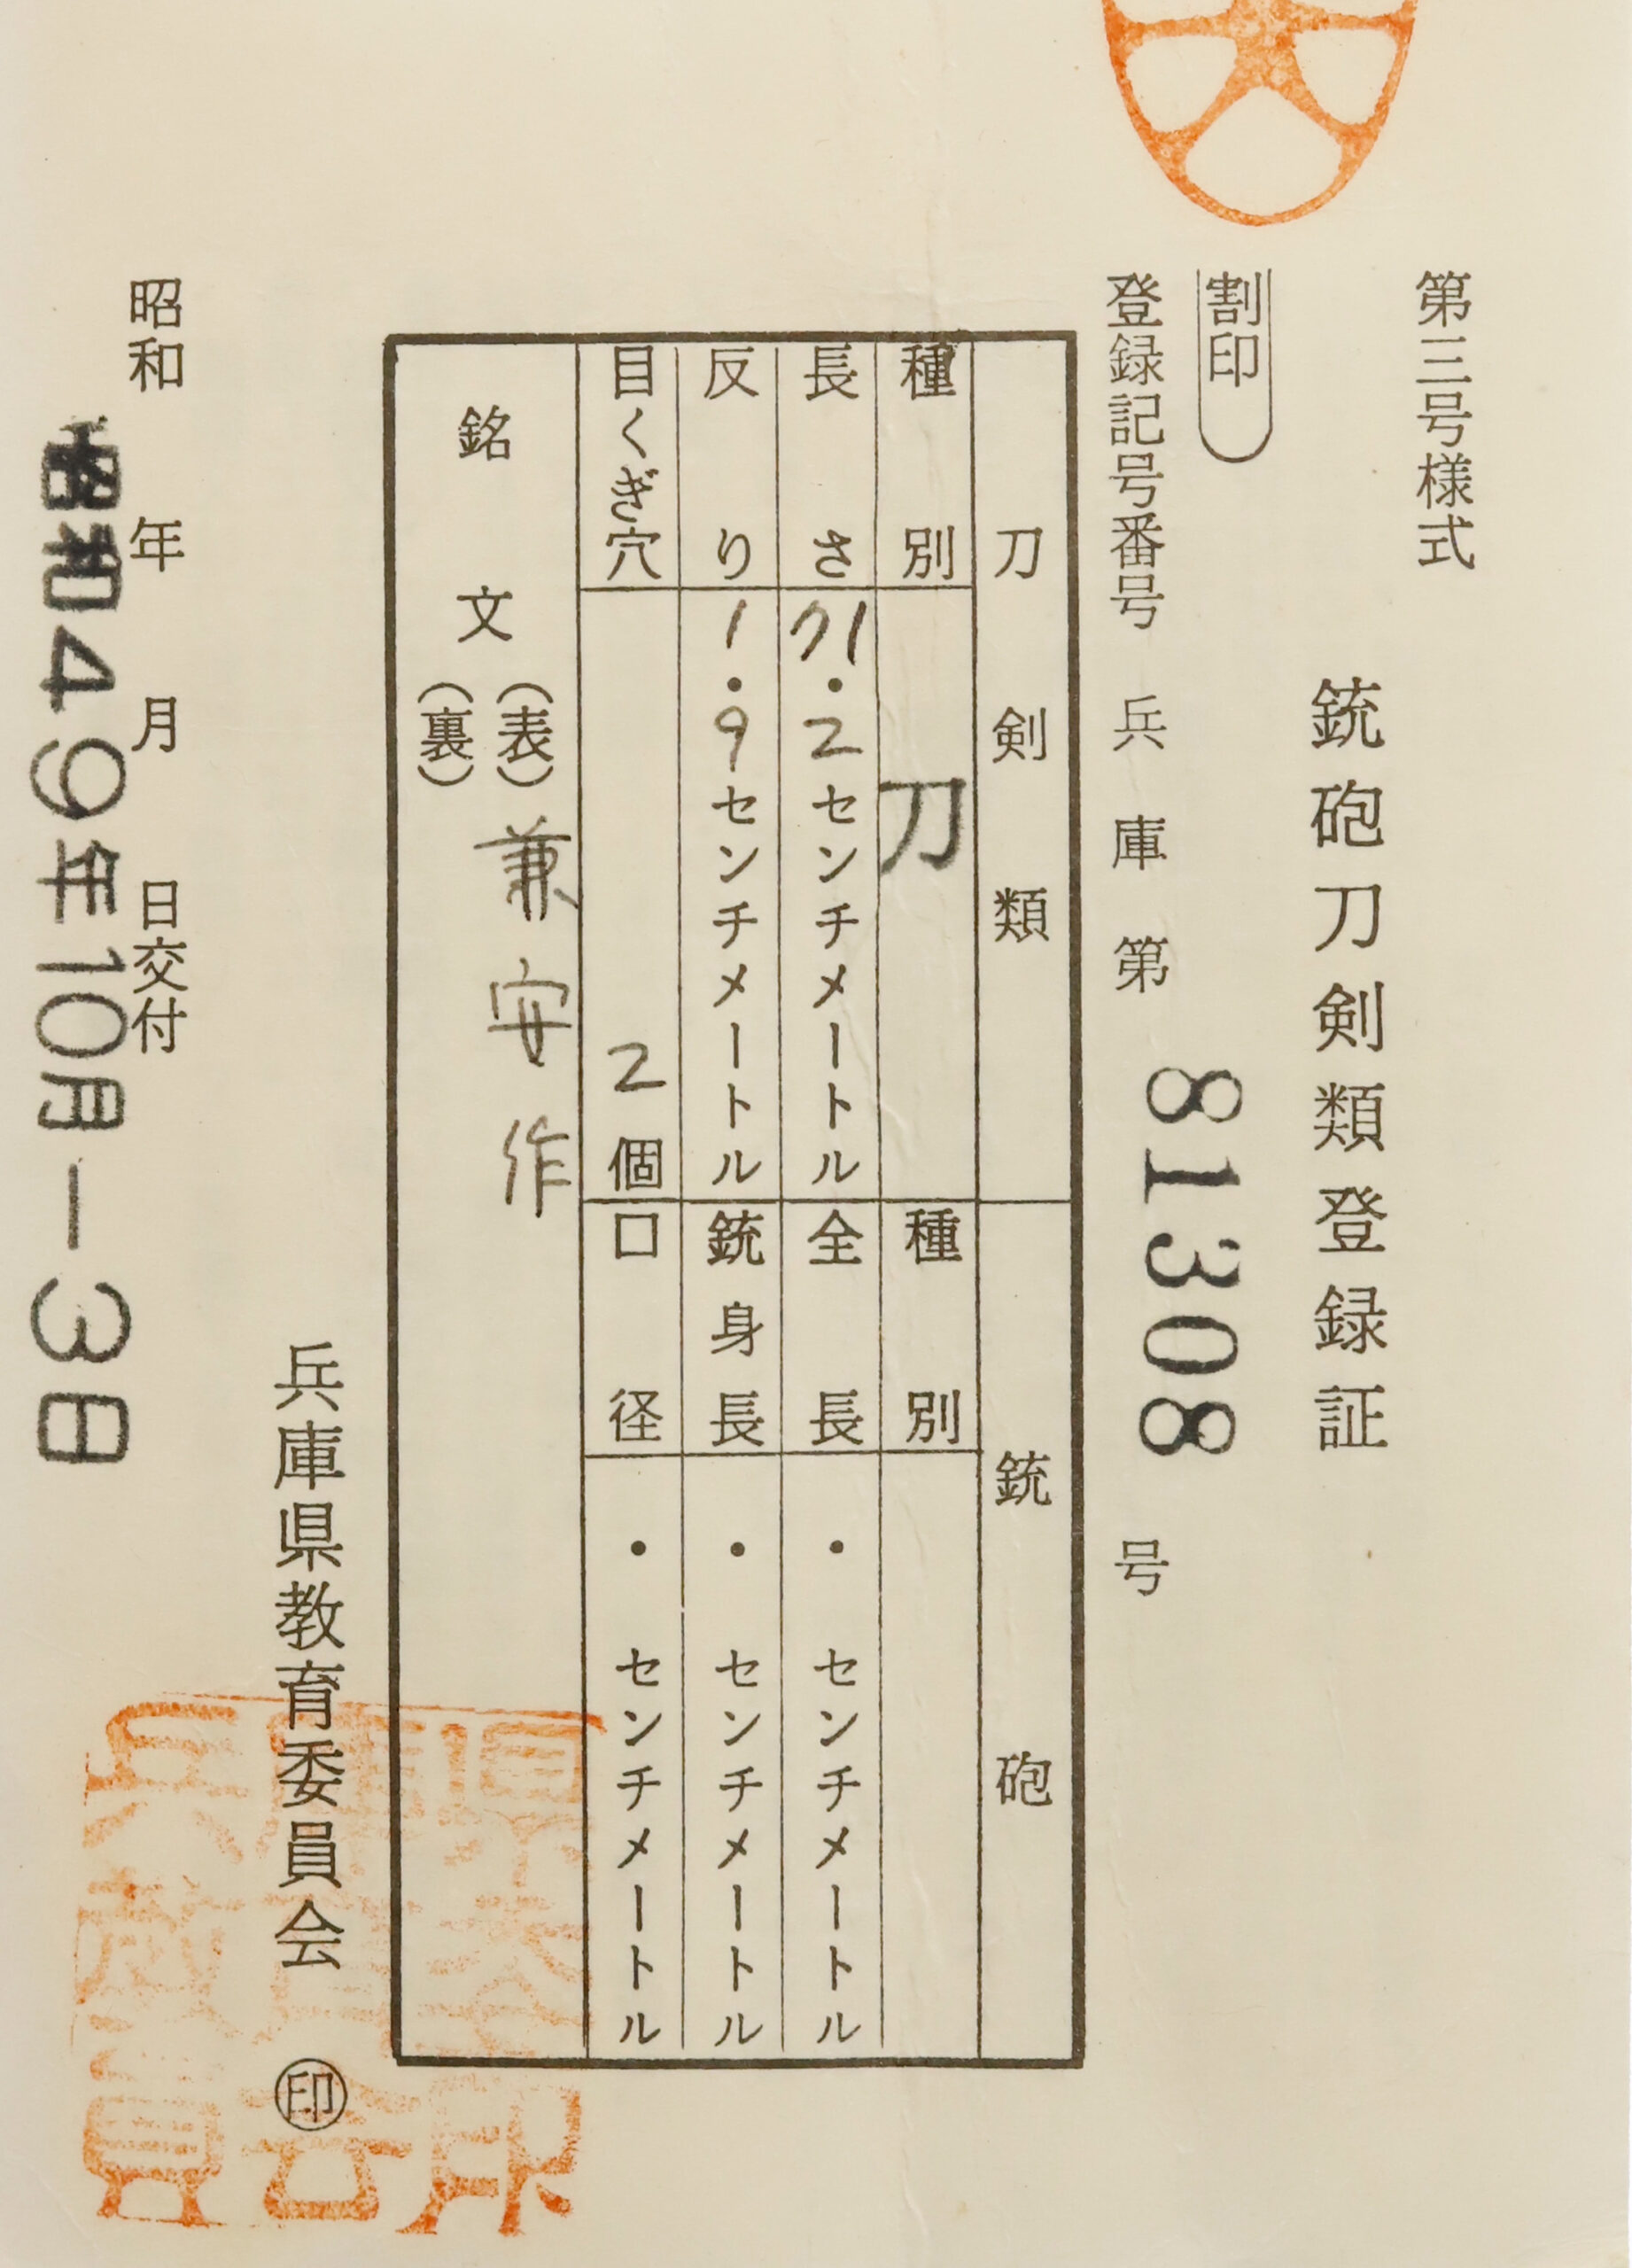 第三号様式
銃砲刀剣類登録証
割印
登録記号番号 兵庫第 81308 号
刀剣類
種別 刀
長さ 71.2センチメートル
反り 1.9センチメートル
目くぎ穴 2個
銃砲
種別
全長 ・ センチメートル
銃身長 ・ センチメートル
口径 ・ センチメートル
銘文 (表) 兼安作
(裏)
兵庫県教育委員会 印
昭和 年 月 日交付
昭和49年10月-3日